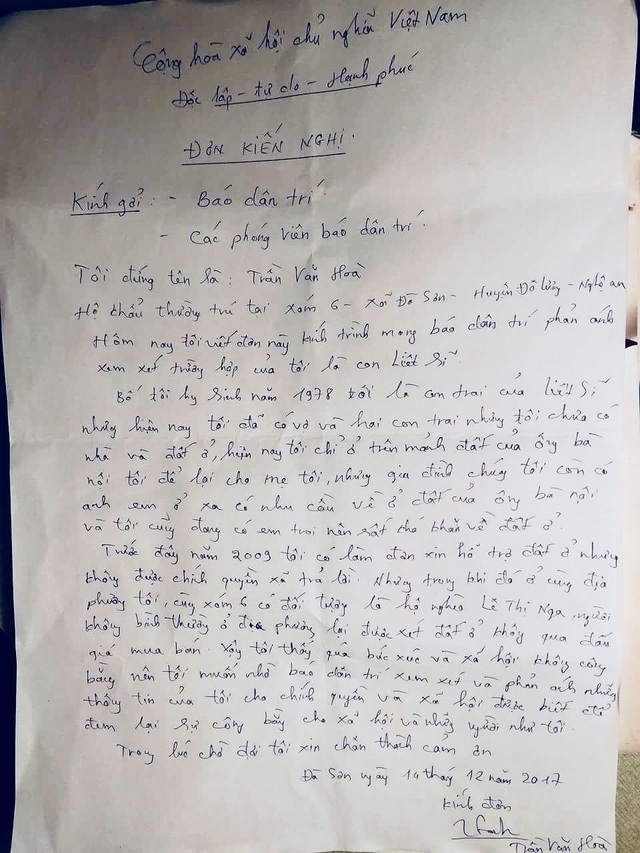 Cộng hòa xã hội chủ nghĩa Việt Nam
Độc lập - tự do - Hạnh phúc
ĐƠN KIẾN NGHỊ.
Kính gởi: - Báo dân trí
- Các phóng viên báo dân trí.
Tôi đứng tên là: Trần Văn Hoà
Hộ khẩu thường trú tại xóm 6 - xã Đà Sơn - Huyện Đô lương - Nghệ an
Hôm nay tôi viết đơn này kính trình mong báo dân trí phản ánh
xem xét trường hợp của tôi là con Liệt Sĩ.
Bố tôi hy sinh năm 1978 tôi là con trai của Liệt Sĩ
nhưng hiện nay tôi đã có vợ và hai con trai nhưng tôi chưa có
nhà và đất ở, hiện nay tôi chỉ ở trên mảnh đất của ông bà
nội tôi để lại cho mẹ tôi, nhưng gia đình chúng tôi còn có
anh em ở xa có nhu cầu về ở đất của ông bà nội
và tôi cũng đang có em trai nên rất khó khăn về đất ở.
Trước đây năm 2009 tôi có làm đơn xin hỗ trợ đất ở nhưng
không được chính quyền xã trả lời. Nhưng trong khi đó ở cùng địa
phương tôi, cùng xóm 6 có đối tượng là hộ nghèo Lê Thị Nga, người
không bình thường ở địa phương lại được xét đất ở không qua đấu
giá mua bán. Vậy tôi thấy quá bức xúc và xã hội không công
bằng nên tôi muốn nhờ báo dân trí xem xét và phản ánh những
thông tin của tôi cho chính quyền và xã hội được biết để
đem lại sự công bằng cho xã hội và những người như tôi.
Trong lúc chờ đợi tôi xin chân thành cảm ơn
Đà Sơn ngày 14 tháng 12 năm 2017
Kính đơn
Trần Văn Hoà